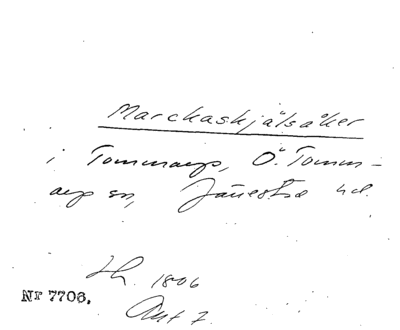 Marckaskjälsåker
i Tommarp, Ö. Tomm-
arp sn, Järrestads hd.
Lh. 1806
Nr 7706.
Akt 7